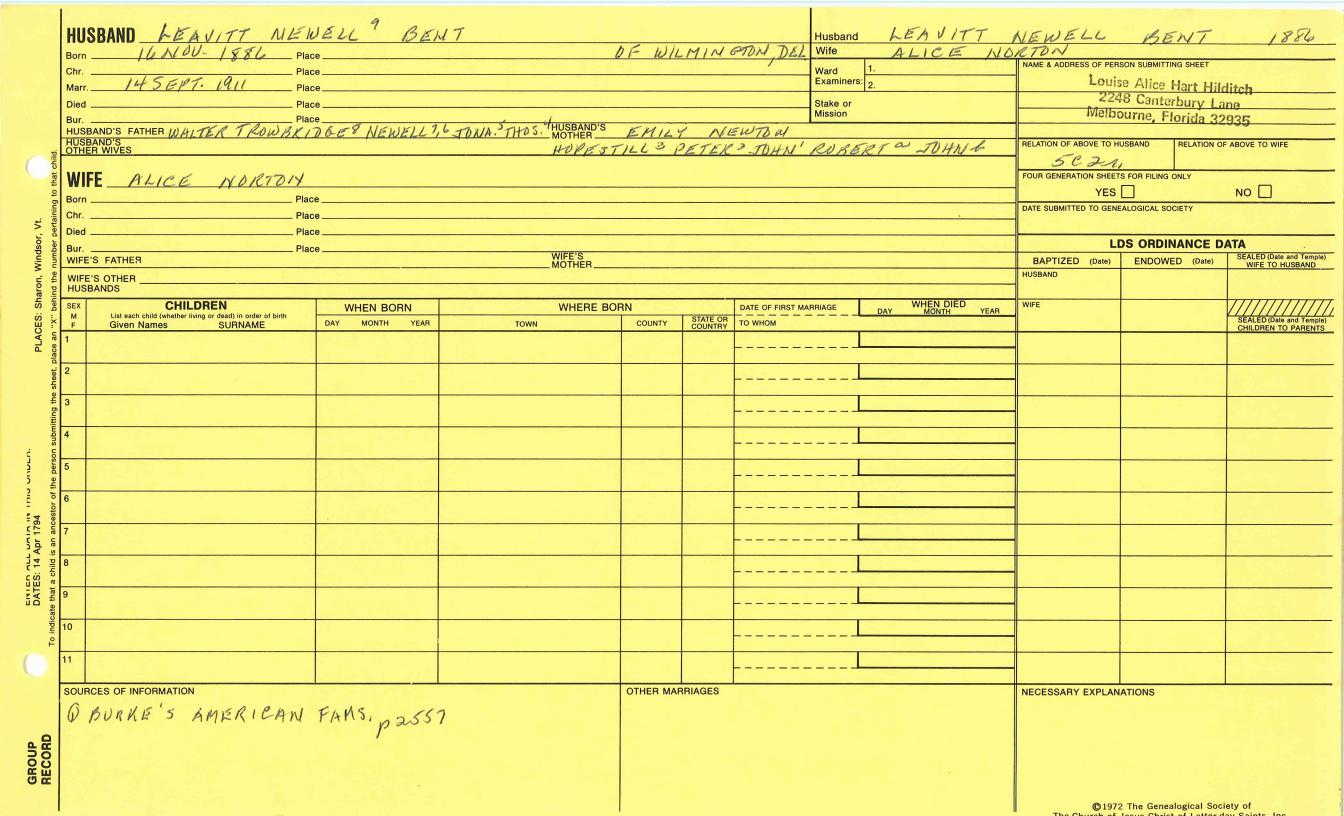 HUSBAND LEAVITT NEWELL⁹ BENT
Born 16 NOV. 1886 Place OF WILMINGTON, DEL
Chr. Place
Marr. 14 SEPT. 1911 Place
Died Place
Bur. Place
HUSBAND'S FATHER WALTER TROWBRIDGE⁸ NEWELL⁷,⁶ JONA.⁵ THOS.⁴ HUSBAND'S MOTHER EMILY NEWTON
HUSBAND'S OTHER WIVES HOPESTILL³ PETER² JOHN¹ ROBERT ᵃ JOHN ᵇ
Husband LEAVITT NEWELL BENT 1886
Wife ALICE NORTON
Ward Examiners: 1.
2.
Stake or Mission
NAME & ADDRESS OF PERSON SUBMITTING SHEET
Louise Alice Hart Hilditch
2248 Canterbury Lane
Melbourne, Florida 32935
RELATION OF ABOVE TO HUSBAND RELATION OF ABOVE TO WIFE
5C2r
FOUR GENERATION SHEETS FOR FILING ONLY
YES NO
DATE SUBMITTED TO GENEALOGICAL SOCIETY
WIFE ALICE NORTON
Born Place
Chr. Place
Died Place
Bur. Place
WIFE'S FATHER WIFE'S MOTHER
WIFE'S OTHER HUSBANDS
LDS ORDINANCE DATA
BAPTIZED (Date) ENDOWED (Date) SEALED (Date and Temple) WIFE TO HUSBAND
HUSBAND
WIFE
SEALED (Date and Temple) CHILDREN TO PARENTS
SEX M F
CHILDREN
List each child (whether living or dead) in order of birth
Given Names SURNAME
WHEN BORN
DAY MONTH YEAR
WHERE BORN
TOWN COUNTY STATE OR COUNTRY
DATE OF FIRST MARRIAGE
TO WHOM
WHEN DIED
DAY MONTH YEAR
1
2
3
4
5
6
7
8
9
10
11
SOURCES OF INFORMATION
① BURKE'S AMERICAN FAMS. p2557
OTHER MARRIAGES
NECESSARY EXPLANATIONS
©1972 The Genealogical Society of
The Church of Jesus Christ of Latter-day Saints, Inc.
ENTER ALL DATA IN THIS ORDER:
DATES: 14 Apr 1794
PLACES: Sharon, Windsor, Vt.
To indicate that a child is an ancestor of the person submitting the sheet, place an "X" behind the number pertaining to that child.
GROUP RECORD